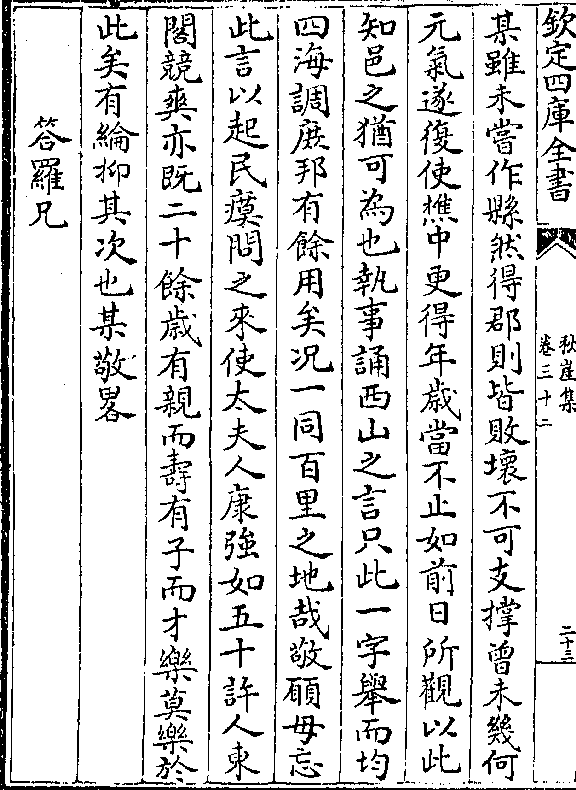 欽定四庫全書
秋崖集
卷三十二
二十三
某雖未嘗作縣然得郡則皆敗壞不可支撐曾未幾何
元氣遂復使樵中更得年歲當不止如前日所觀以此
知邑之猶可為也執事誦西山之言只此一字舉而均
四海調庶邦有餘用矣况一同百里之地哉敬願毋忘
此言以起民瘼問之來使太夫人康強如五十許人東
閤競爽亦既二十餘歲有親而壽有子而才樂莫樂於
此矣有綸抑其次也某敬畧
答羅兄